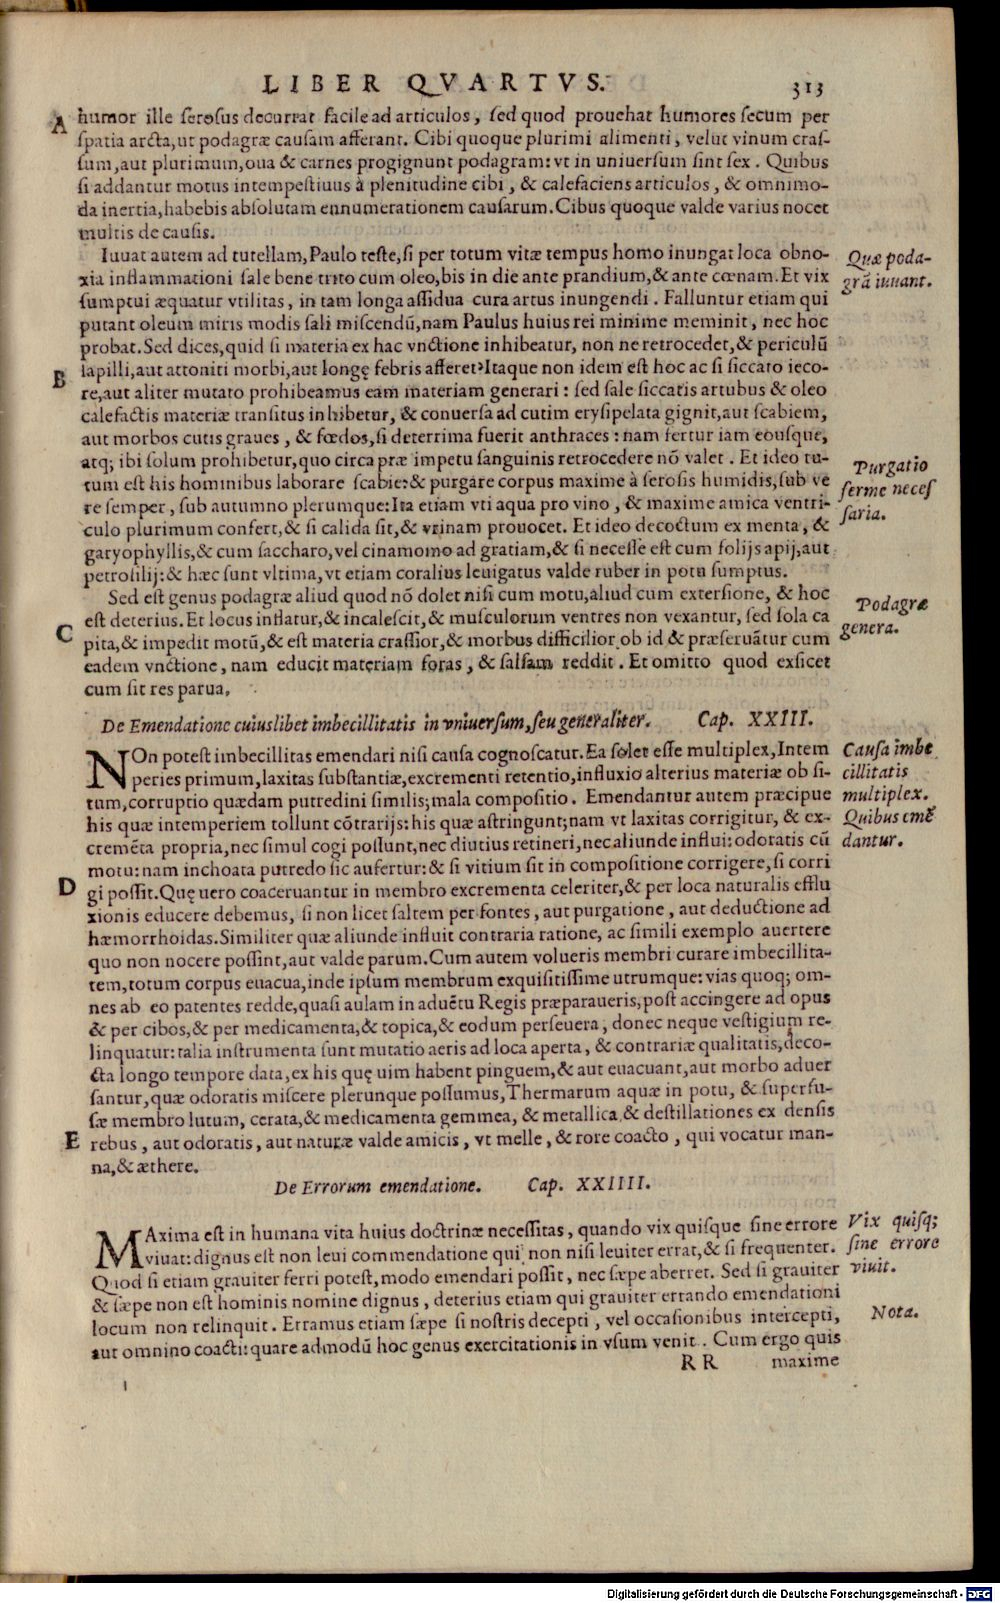 LIBER QVARTVS. 313
A humor ille serosus decurrat facile ad articulos, sed quod prouehat humores secum per
spatia arcta, ut podagræ causam afferant. Cibi quoque plurimi alimenti, velut vinum cras-
sum, aut plurimum, oua & carnes progignunt podagram: vt in uniuersum sint sex. Quibus
si addantur motus intempestiuus à plenitudine cibi, & calefaciens articulos, & omnimo-
da inertia, habebis absolutam ennumerationem causarum. Cibus quoque valde varius nocet
multis de causis.
Iuuat autem ad tutellam, Paulo teste, si per totum vitæ tempus homo inungat loca obno-
xia inflammationi sale bene trito cum oleo, bis in die ante prandium, & ante cœnam. Et vix
sumptui æquatur vtilitas, in tam longa assidua cura artus inungendi. Falluntur etiam qui
putant oleum miris modis sali miscendũ, nam Paulus huius rei minime meminit, nec hoc
probat. Sed dices, quid si materia ex hac vnctione inhibeatur, non ne retrocedet, & periculũ
B lapilli, aut attoniti morbi, aut longę febris afferet? Itaque non idem est hoc ac si siccato ieco-
re, aut aliter mutato prohibeamus eam materiam generari: sed sale siccatis artubus & oleo
calefactis materiæ transitus inhibetur, & conuersa ad cutim erysipelata gignit, aut scabiem,
aut morbos cutis graues, & fœdos, si deterrima fuerit anthraces: nam fertur iam eousque,
atq; ibi solum prohibetur, quo circa præ impetu sanguinis retrocedere nõ valet. Et ideo tu-
tum est his hominibus laborare scabie: & purgare corpus maxime à serosis humidis, sub ve
re semper, sub autumno plerumque: Ita etiam vti aqua pro vino, & maxime amica ventri-
culo plurimum confert, & si calida sit, & vrinam prouocet. Et ideo decoctum ex menta, &
garyophyllis, & cum saccharo, vel cinamomo ad gratiam, & si necesse est cum folijs apij, aut
petrosilij: & hæc sunt vltima, vt etiam coralius leuigatus valde ruber in potu sumptus.
Sed est genus podagræ aliud quod nõ dolet nisi cum motu, aliud cum extersione, & hoc
est deterius. Et locus inflatur, & incalescit, & musculorum ventres non vexantur, sed sola ca
C pita, & impedit motũ, & est materia crassior, & morbus difficilior ob id & præseruãtur cum
eadem vnctione, nam educit materiam foras, & salsam reddit. Et omitto quod exsicet
cum sit res parua.
Quæ poda-
grã iuuant.
Purgatio
ferme neces
saria.
Podagræ
genera.
De Emendatione cuiuslibet imbecillitatis in vniuersum, seu generaliter. Cap. XXIII.
NOn potest imbecillitas emendari nisi causa cognoscatur. Ea solet esse multiplex, Intem
peries primum, laxitas substantiæ, excrementi retentio, influxio alterius materiæ ob si-
tum, corruptio quædam putredini similis; mala compositio. Emendantur autem præcipue
his quæ intemperiem tollunt cõtrarijs: his quæ astringunt; nam vt laxitas corrigitur, & ex-
cremẽta propria, nec simul cogi possunt, nec diutius retineri, nec aliunde influi: odoratis cũ
motu: nam inchoata putredo sic aufertur: & si vitium sit in compositione corrigere, si corri
D gi possit. Quę uero coaceruantur in membro excrementa celeriter, & per loca naturalis efflu
xionis educere debemus, si non licet saltem per fontes, aut purgatione, aut deductione ad
hæmorrhoidas. Similiter quæ aliunde influit contraria ratione, ac simili exemplo auertere
quo non nocere possint, aut valde parum. Cum autem volueris membri curare imbecillita-
tem, totum corpus euacua, inde ipsum membrum exquisitissime utrumque: vias quoq; om-
nes ab eo patentes redde, quasi aulam in aduẽtu Regis præparaueris, post accingere ad opus
& per cibos, & per medicamenta, & topica, & eodum perseuera, donec neque vestigium re-
linquatur: talia instrumenta sunt mutatio aeris ad loca aperta, & contrariæ qualitatis, deco-
cta longo tempore data, ex his quę uim habent pinguem, & aut euacuant, aut morbo aduer
santur, quæ odoratis miscere plerunque possumus, Thermarum aquæ in potu, & superfu-
sæ membro lutum, cerata, & medicamenta gemmea, & metallica, & destillationes ex densis
E rebus, aut odoratis, aut naturæ valde amicis, vt melle, & rore coacto, qui vocatur man-
na, & æthere.
Causa imbe
cillitatis
multiplex.
Quibus emẽ
dantur.
De Errorum emendatione. Cap. XXIIII.
MAxima est in humana vita huius doctrinæ necessitas, quando vix quisque sine errore
viuat: dignus est non leui commendatione qui non nisi leuiter errat, & si frequenter.
Quod si etiam grauiter ferri potest, modo emendari possit, nec sæpe aberret. Sed si grauiter
& sæpe non est hominis nomine dignus, deterius etiam qui grauiter errando emendationi
locum non relinquit. Erramus etiam sæpe si nostris decepti, vel occasionibus intercepti,
aut omnino coacti: quare admodũ hoc genus exercitationis in vsum venit. Cum ergo quis
RR maxime
Vix quisq;
sine errore
viuit.
Nota.
Digitalisierung gefördert durch die Deutsche Forschungsgemeinschaft - DFG